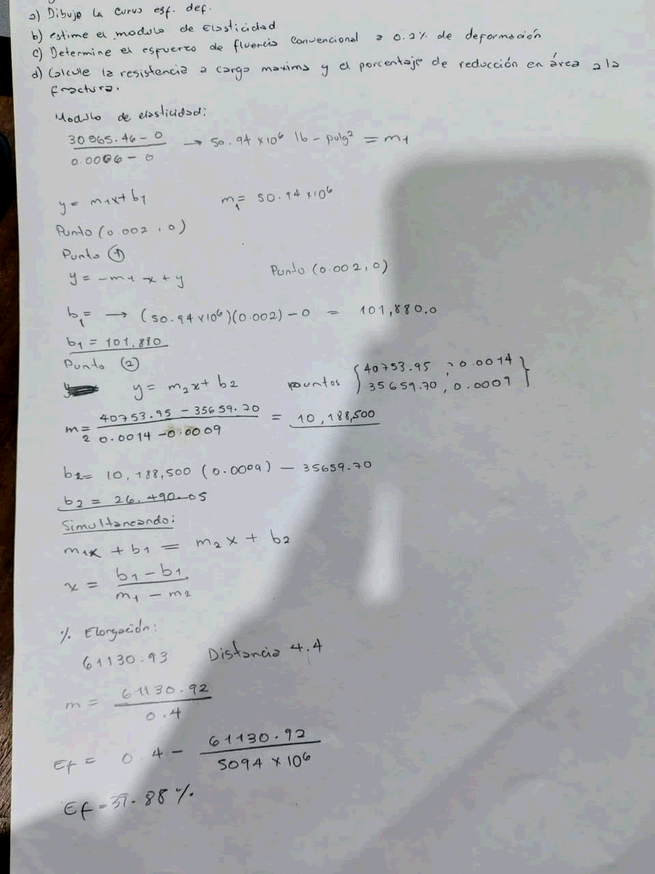 a) Dibuje la curva esf. def.
b) estime el modulo de Elasticidad
c) Determine el esfuerzo de fluencia convencional a 0.2% de deformación
d) Calcule la resistencia a carga maxima y el porcentaje de reducción en área a la
fractura.
Modulo de elasticidad:
30965.46 - 0
0.0006 - 0
→ 50.94 x10⁶ lb - pulg² = m1
y = m1x + b1 m1 = 50.94 x10⁶
Punto (0.002, 0)
Punto ①
y = -m1 - x + y Punto (0.002, 0)
b1 = → (50.94 x10⁶)(0.002) - 0 = 101,880.0
b1 = 101,880
Punto (2)
y = m2x + b2 puntos { 40753.95, 0.0014
35659.70, 0.0009 }
m2 = 40753.95 - 35659.70 = 10,188,500
0.0014 - 0.0009
b2 = 10,188,500 (0.0009) - 35659.70
b2 = 26.490.05
Simultaneando:
m1x + b1 = m2x + b2
x = b1 - b1
m1 - m2
% Elongación:
61130.93 Distancia 4.4
m = 61130.92
0.4
Ef = 0.4 - 61130.92
5094 x 10⁶
Ef = 37.88 %